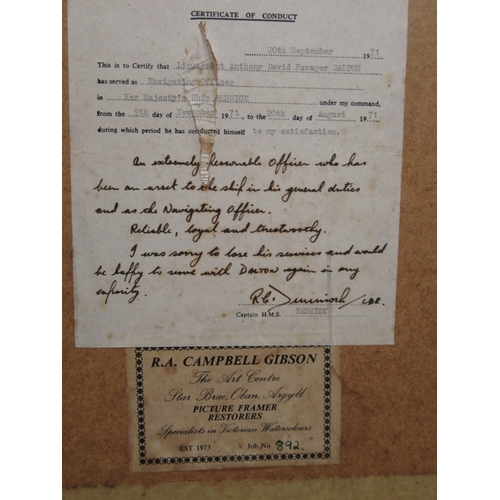 CERTIFICATE OF CONDUCT
20th September 1971
This is to Certify that Lieutenant Anthony David Favager DALTON
has served as Navigating Officer
in Her Majesty's Ship under my command,
from the 9th day of 1971 to the 20th day of August 1971
during which period he has conducted himself to my satisfaction.
An extremely personable Officer who has
been an asset to the ship in his general duties
and as the Navigating Officer.
Reliable, loyal and trustworthy.
I was sorry to lose his services and would
be happy to serve with DALTON again in any
capacity.
R.C. Dimmock
Captain H.M.S.
R.A. CAMPBELL GIBSON
The Art Centre
Star Brae, Oban, Argyll
PICTURE FRAMER
RESTORERS
Specialists in Victorian Watercolours
EST 1973 Job No. 892.